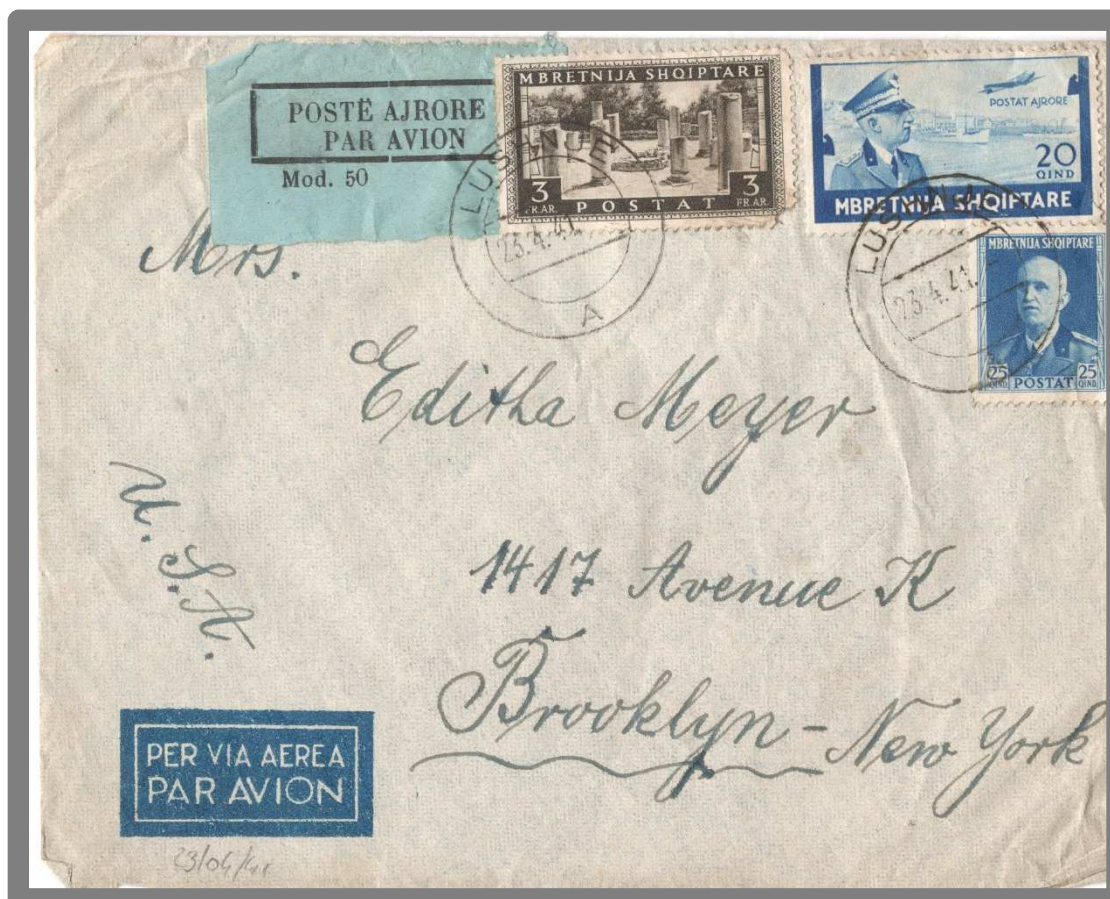 POSTË AJRORE
PAR AVION
Mod. 50
MBRETNIJA SHQIPTARE
3 3
FR.AR. FR.AR.
POSTAT
LUSHNJE
23.4.41
A
POSTAT AJRORE
20
QIND
MBRETNIJA SHQIPTARE
LUSHNJE
23.4.41
MBRETNIJA SHQIPTARE
25 25
QIND. QIND.
POSTAT
Mrs.
Editha Meyer
1417 Avenue K
Brooklyn - New York
U.S.A.
PER VIA AEREA
PAR AVION
23/04/41